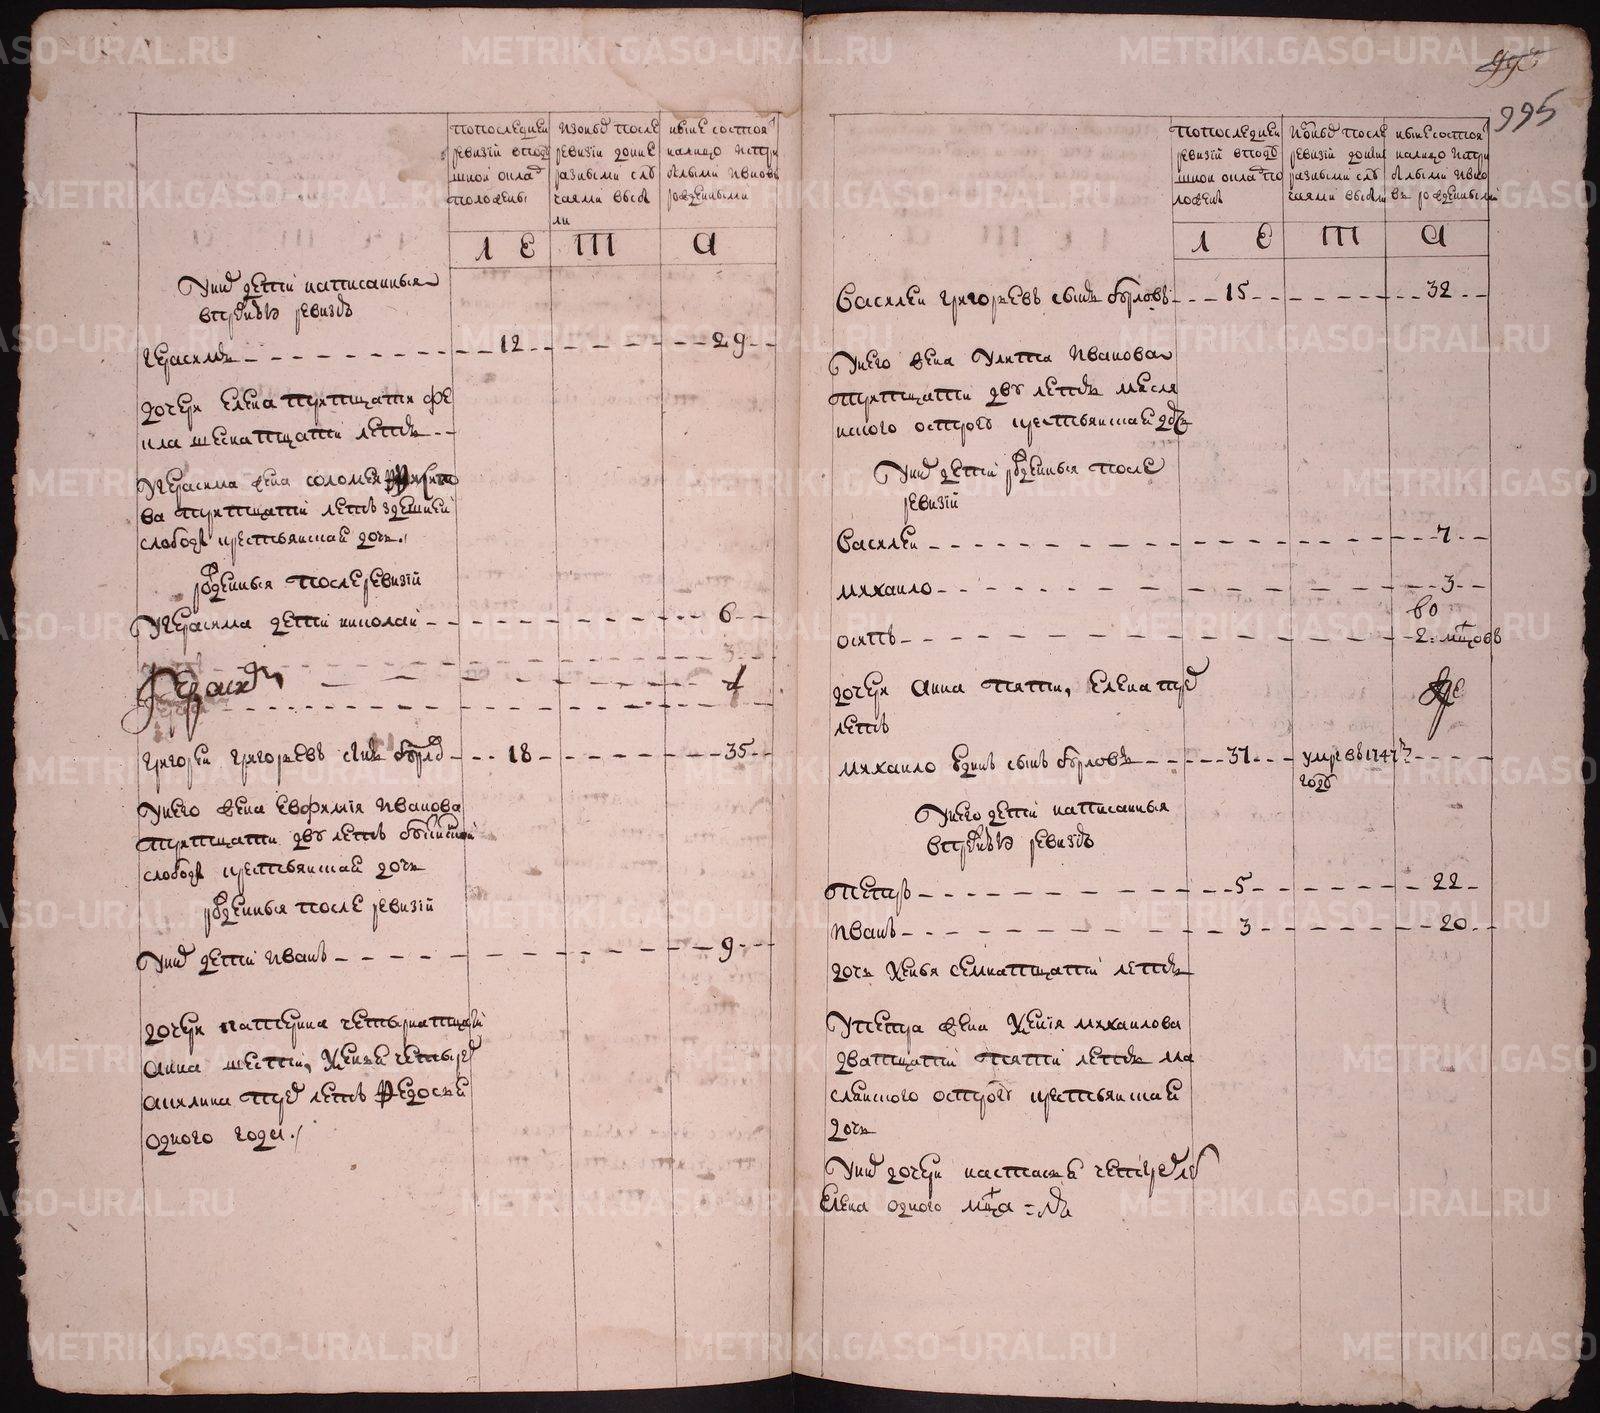 METRIKI.GASO-URAL.RU
995
по последней
ревизии в подушной
шной оклад
положены
Л Е
из оных после
ревизии до ныне
разными слу
чаями выбы
ли
Ш
ныне состоят
налицо и с при
былыми и вновь
рожденными
А
У них дети написанныя
в прежней ревизии
Герасим 12 29
дочери Елена тритцати Фе
кла шеснатцати лет
У Герасима жена Соломея
ва тритцати лет здешней
слободы крестьянская дочь
рожденныя после ревизии
У Герасима дети Николай 6
Григорей Григорьев сын Бурлов 18 35
У него жена Евфимия Иванова
тритцати дву лет
слободы крестьянская дочь
рожденныя после ревизии
У них дети Иван 9
дочери Катерина четырнатцати
Анна шести, Ксенья четырех
Акилина трех лет Федосья
одного году
по последней
ревизии в подуш
шной оклад по
ложены
Л Е
из оных после
ревизии до ныне
разными слу
чаями выбыли
Ш
ныне состоят
налицо и с при
былыми и вно
вь рожденными
А
Василей Григорьев сын Бурлов 15 32
У него жена Улита Иванова
тритцати дву лет Масля
нского острогу крестьянская дочь
У них дети рожденныя после
ревизии
Василей 7
Михайло 3
во
Осип 2 м҃цов
дочери Анна пяти, Елена трех
лет
Михайло Еднив сын Бурлов 37 умре в 1747
году
У него дети написанныя
в прежней ревизии
Петр 5 22
Иван 3 20
дочь Ксенья семнатцати лет
У Петра жена Ксения Михайлова
дватцати пяти лет Ма
слянского острогу крестьянская
дочь
У них дочери Настасья четырех лет
Елена одного м҃ца